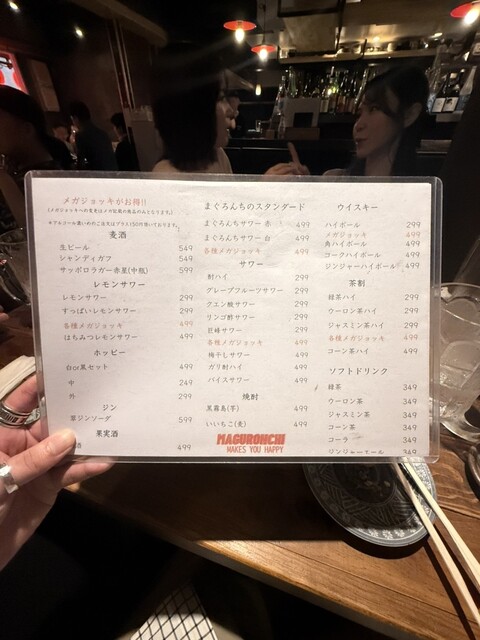 メガジョッキがお得!!
麦酒
生ビール 549
シャンディガフ 549
サッポロラガー赤星(中瓶) 599
レモンサワー
レモンサワー 299
すっぱいレモンサワー 299
各種メガジョッキ 499
はちみつレモンサワー 499
ホッピー
白or黒セット 499
中 249
外 299
ジン
翠ジンソーダ 599
果実酒
酒 499
まぐろんちのスタンダード
まぐろんちサワー 赤 499
まぐろんちサワー 白 499
各種メガジョッキ 699
サワー
酎ハイ 299
グレープフルーツサワー 299
クエン酸サワー 299
リンゴ酢サワー 299
巨峰サワー 299
各種メガジョッキ 499
梅干しサワー 499
ガリ酎ハイ 499
バイスサワー 499
焼酎
黒霧島(芋) 499
いいちこ(麦) 499
MAGURONCHI
MAKES YOU HAPPY
ウイスキー
ハイボール 299
メガジョッキ 499
角ハイボール 499
コークハイボール 499
ジンジャーハイボール 499
茶割
緑茶ハイ 299
ウーロン茶ハイ 299
ジャスミン茶ハイ 299
各種メガジョッキ 499
コーン茶ハイ 499
ソフトドリンク
緑茶 349
ウーロン茶 349
ジャスミン茶 349
コーン茶 349
コーラ 349
ジンジャーエール 349